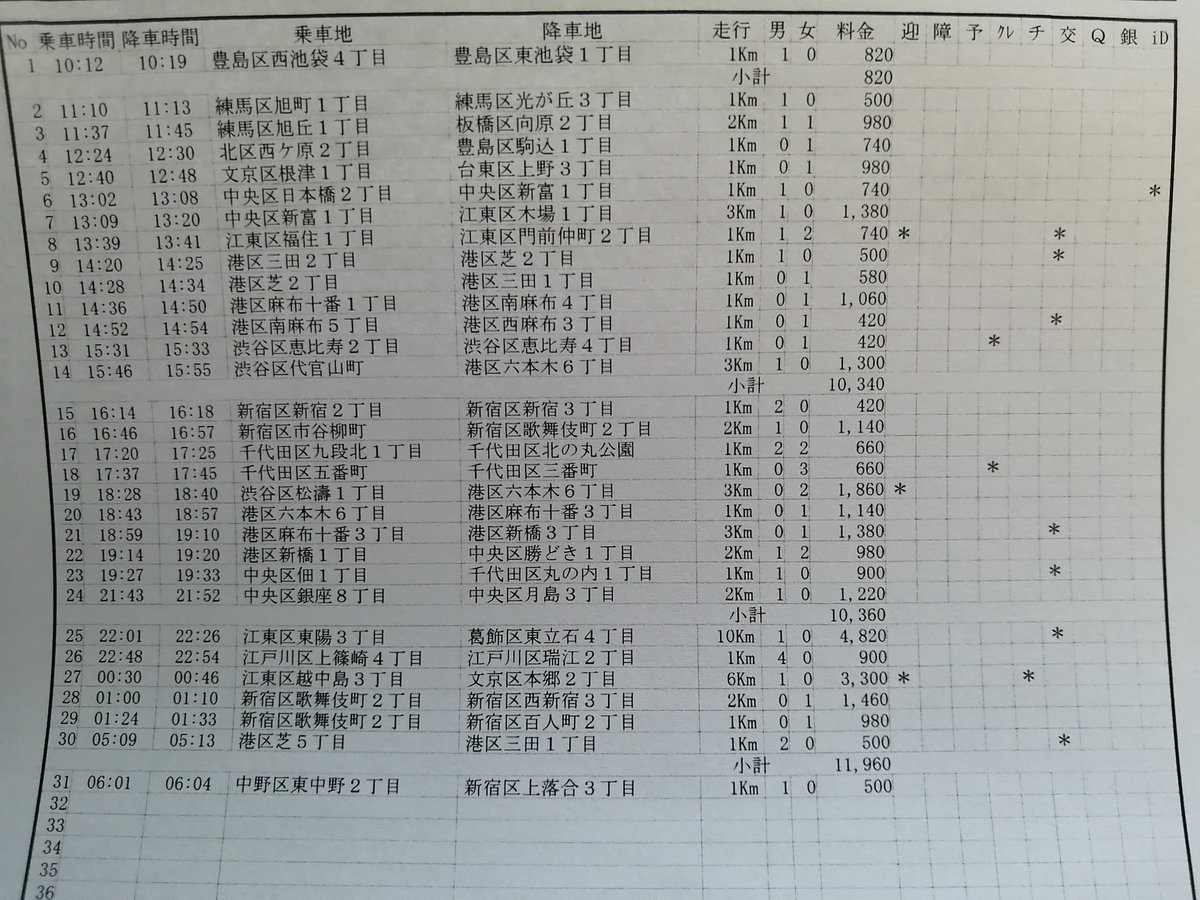 No 乗車時間 降車時間 乗車地 降車地 走行 男 女 料金 迎 障 予 クレ チ 交 Q 銀 iD
1 10:12 10:19 豊島区西池袋4丁目 豊島区東池袋1丁目 1Km 1 0 820
小計 820
2 11:10 11:13 練馬区旭町1丁目 練馬区光が丘3丁目 1Km 1 0 500
3 11:37 11:45 練馬区旭丘1丁目 板橋区向原2丁目 2Km 1 1 980
4 12:24 12:30 北区西ケ原2丁目 豊島区駒込1丁目 1Km 0 1 740
5 12:40 12:48 文京区根津1丁目 台東区上野3丁目 1Km 0 1 980
6 13:02 13:08 中央区日本橋2丁目 中央区新富1丁目 1Km 1 0 740 *
7 13:09 13:20 中央区新富1丁目 江東区木場1丁目 3Km 1 0 1,380
8 13:39 13:41 江東区福住1丁目 江東区門前仲町2丁目 1Km 1 2 740 * *
9 14:20 14:25 港区三田2丁目 港区芝2丁目 1Km 1 0 500 *
10 14:28 14:34 港区芝2丁目 港区三田1丁目 1Km 0 1 580
11 14:36 14:50 港区麻布十番1丁目 港区南麻布4丁目 1Km 0 1 1,060
12 14:52 14:54 港区南麻布5丁目 港区西麻布3丁目 1Km 0 1 420 *
13 15:31 15:33 渋谷区恵比寿2丁目 渋谷区恵比寿4丁目 1Km 0 1 420 *
14 15:46 15:55 渋谷区代官山町 港区六本木6丁目 3Km 1 0 1,300
小計 10,340
15 16:14 16:18 新宿区新宿2丁目 新宿区新宿3丁目 1Km 2 0 420
16 16:46 16:57 新宿区市谷柳町 新宿区歌舞伎町2丁目 2Km 1 0 1,140
17 17:20 17:25 千代田区九段北1丁目 千代田区北の丸公園 1Km 2 2 660
18 17:37 17:45 千代田区五番町 千代田区三番町 1Km 0 3 660 *
19 18:28 18:40 渋谷区松濤1丁目 港区六本木6丁目 3Km 0 2 1,860 *
20 18:43 18:57 港区六本木6丁目 港区麻布十番3丁目 1Km 0 1 1,140
21 18:59 19:10 港区麻布十番3丁目 港区新橋3丁目 3Km 0 1 1,380 *
22 19:14 19:20 港区新橋1丁目 中央区勝どき1丁目 2Km 1 2 980
23 19:27 19:33 中央区佃1丁目 千代田区丸の内1丁目 1Km 1 0 900 *
24 21:43 21:52 中央区銀座8丁目 中央区月島3丁目 2Km 1 0 1,220
小計 10,360
25 22:01 22:26 江東区東陽3丁目 葛飾区東立石4丁目 10Km 1 0 4,820 *
26 22:48 22:54 江戸川区上篠崎4丁目 江戸川区瑞江2丁目 1Km 4 0 900
27 00:30 00:46 江東区越中島3丁目 文京区本郷2丁目 6Km 1 0 3,300 * *
28 01:00 01:10 新宿区歌舞伎町2丁目 新宿区西新宿3丁目 2Km 0 1 1,460
29 01:24 01:33 新宿区歌舞伎町2丁目 新宿区百人町2丁目 1Km 0 1 980
30 05:09 05:13 港区芝5丁目 港区三田1丁目 1Km 2 0 500 *
小計 11,960
31 06:01 06:04 中野区東中野2丁目 新宿区上落合3丁目 1Km 1 0 500
32
33
34
35
36